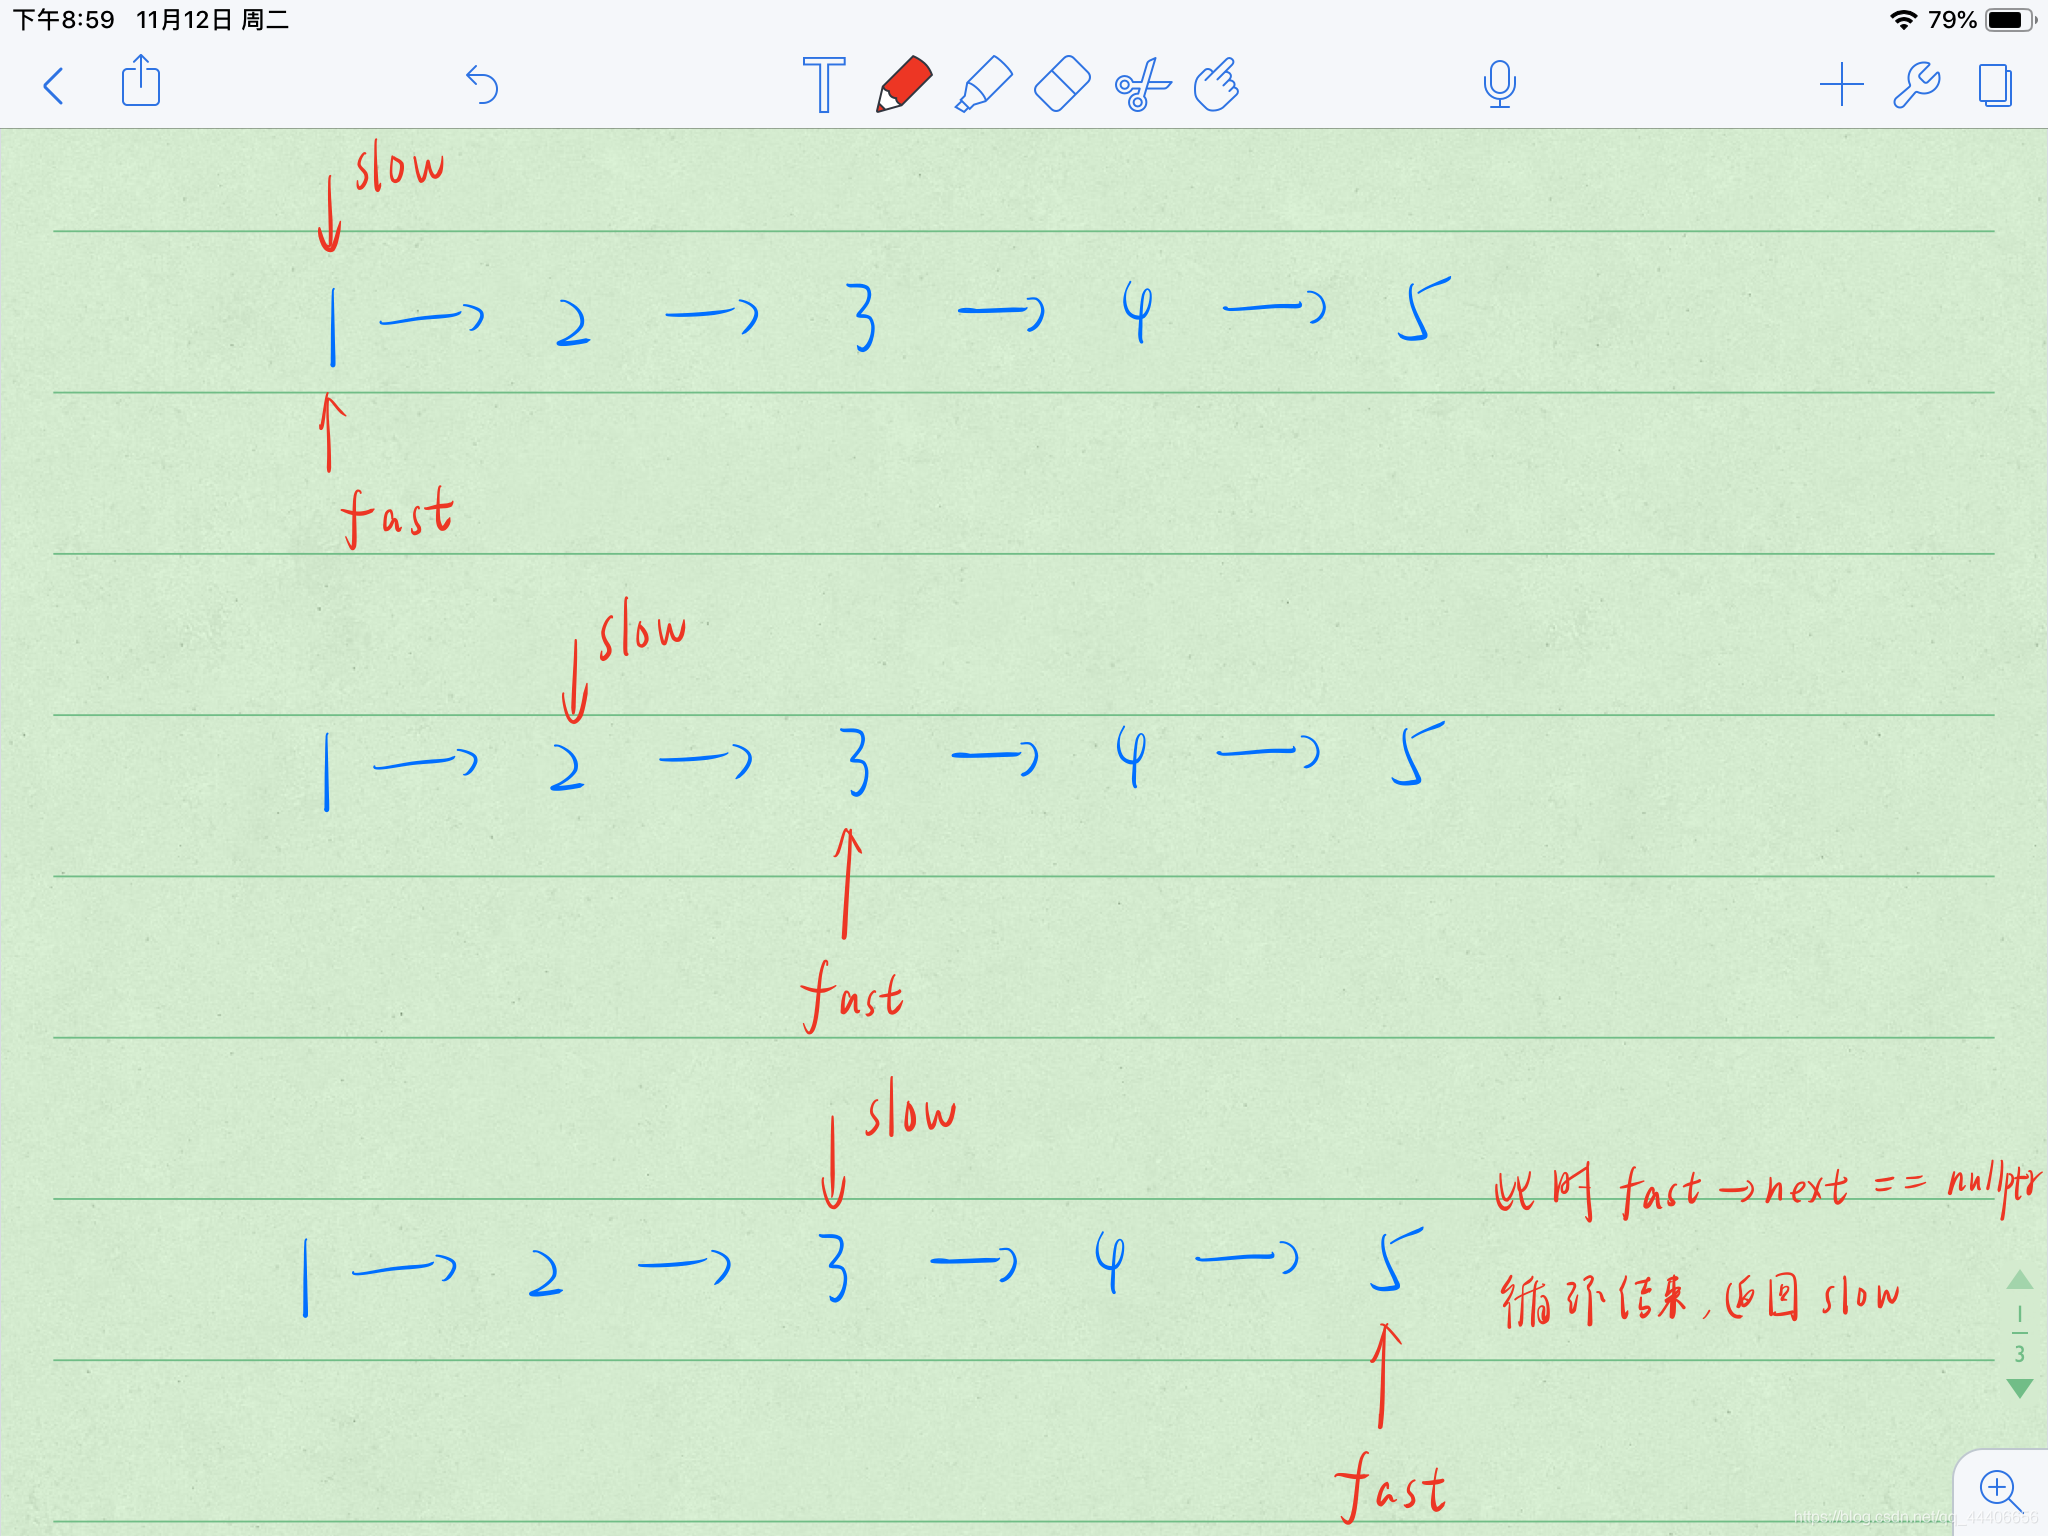 下午8:59 11月12日 周二
79%
slow
1 → 2 → 3 → 4 → 5
fast
slow
1 → 2 → 3 → 4 → 5
fast
slow
此时 fast → next == nullptr
1 → 2 → 3 → 4 → 5
循环结束,返回 slow
1
3
fast
https://blog.csdn.net/qq_44406656